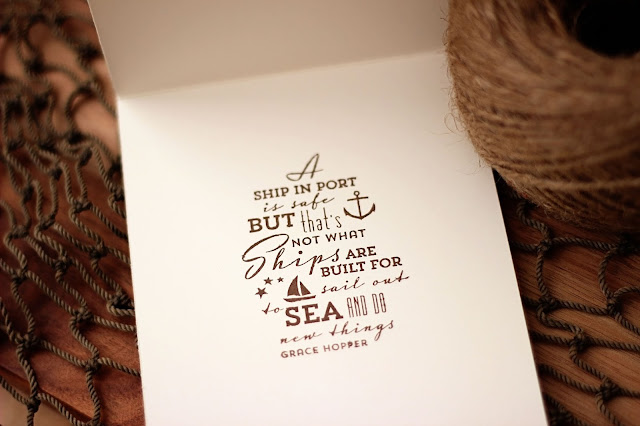 A
SHIP IN PORT
is safe
BUT that's
NOT WHAT
Ships ARE
BUILT FOR
sail out
to SEA AND DO
new things
GRACE HOPPER